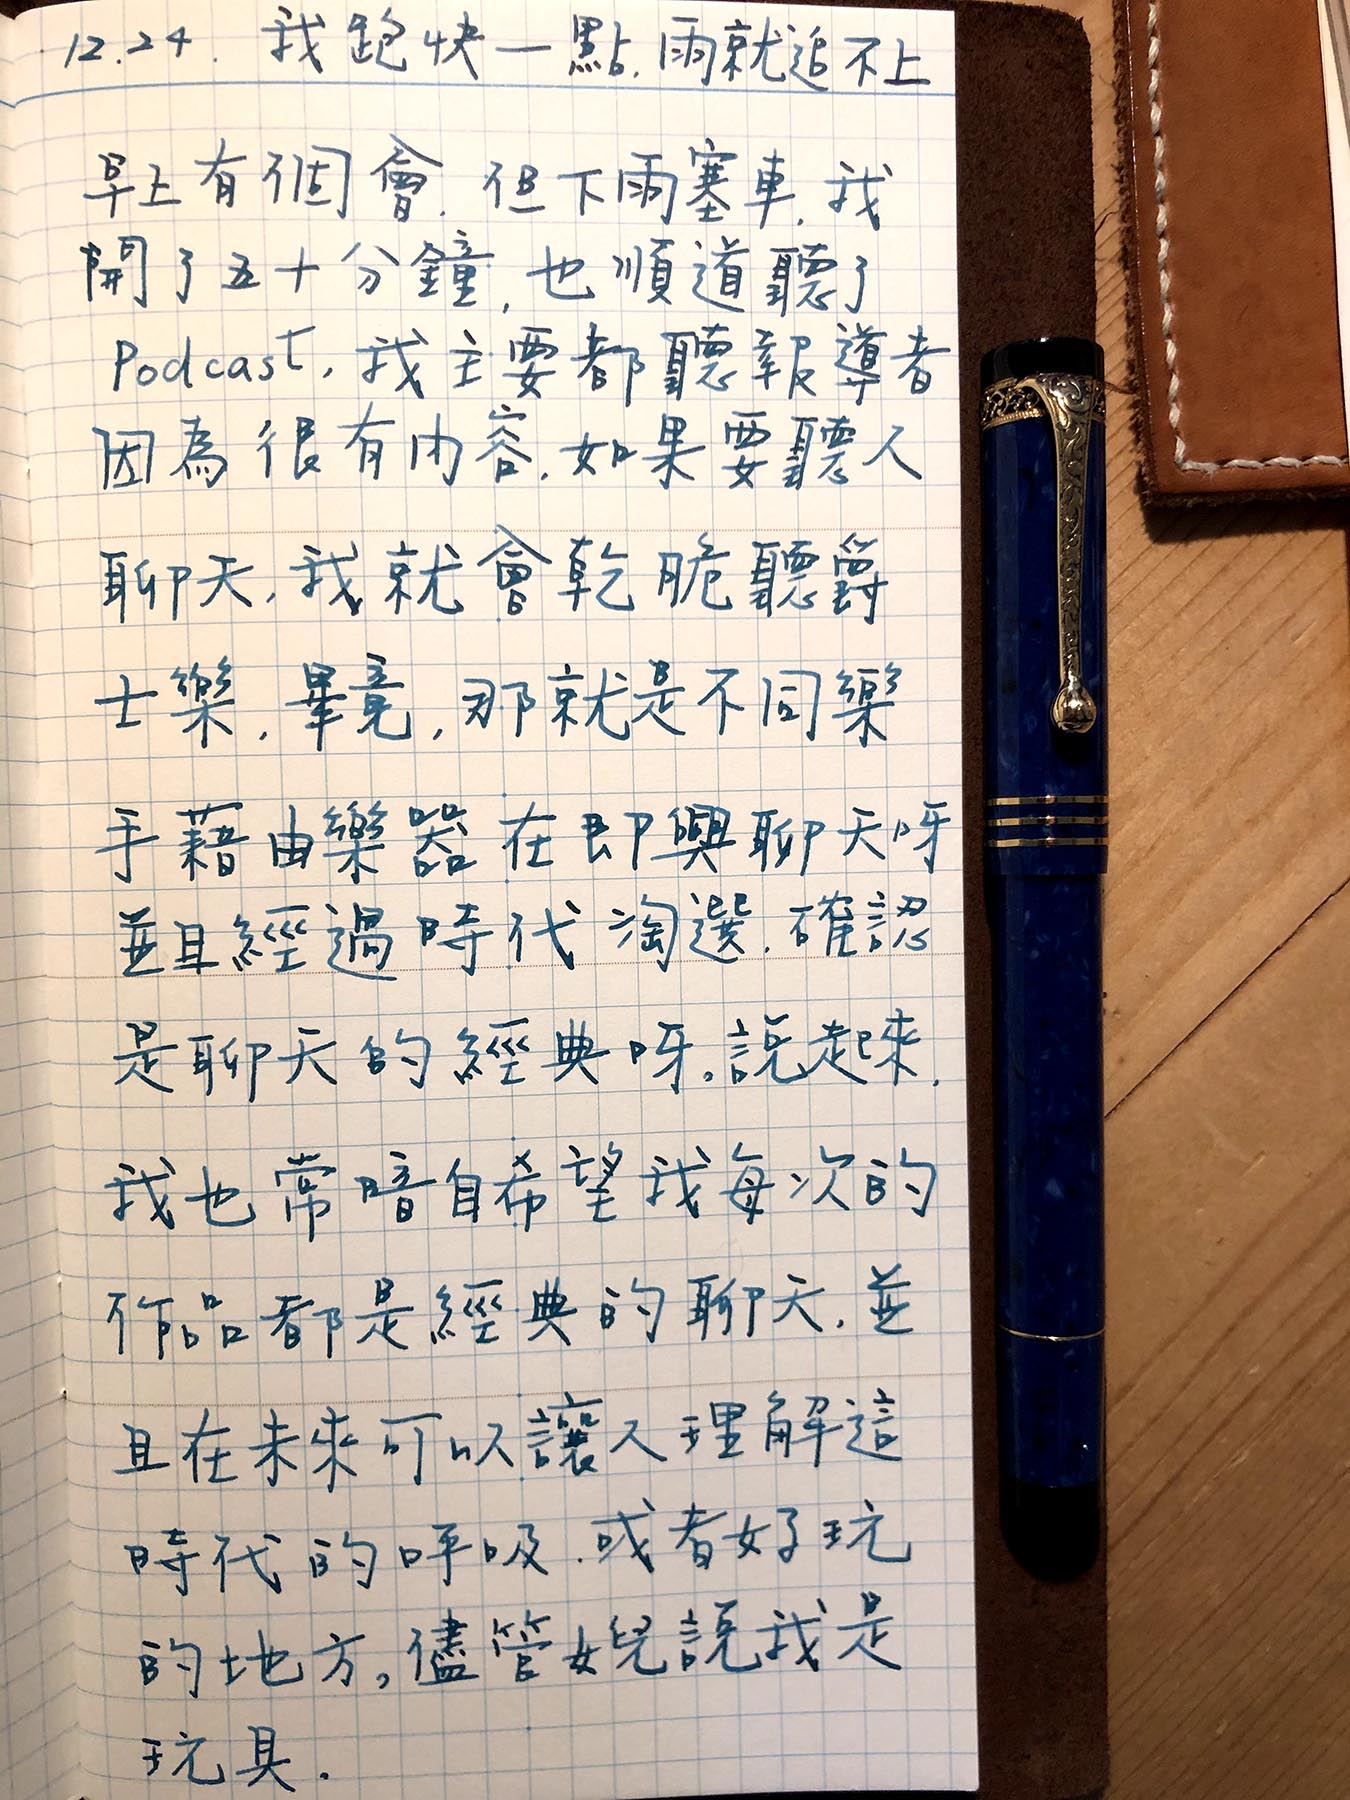 12.24. 我跑快一點,雨就追不上
早上有個會,但下雨塞車,我
開了五十分鐘,也順道聽了
Podcast,我主要都聽報導者
因為很有內容,如果要聽人
聊天,我就會乾脆聽爵
士樂,畢竟,那就是不同樂
手藉由樂器在即興聊天呀
並且經過時代淘選,確認
是聊天的經典呀。說起來,
我也常暗自希望我每次的
作品都是經典的聊天,並
且在未來可以讓人理解這
時代的呼吸,或者好玩
的地方。儘管女兒說我是
玩具.